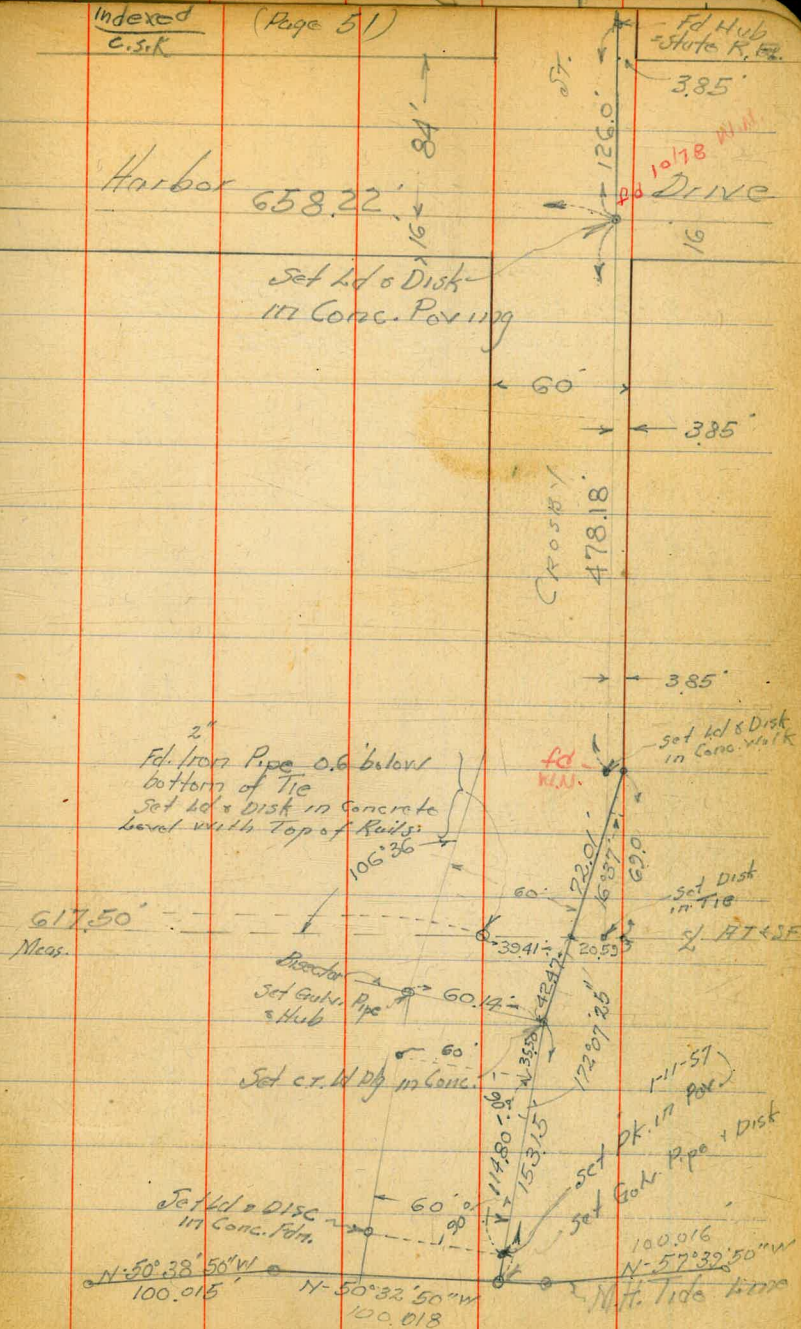 Indexed
C.S.K
(Page 51)
Fd Hub
State R,
3.85'
84'
St.
126.0'
fd 10/78 W.N.
Harbor
658.22'
Drive
16'
16'
Set Ld & Disk
in Conc. Paving
60'
3.85'
CROSBY
478.18'
3.85'
Set Ld & Disk
in Conc. Walk
2"
Fd. Iron Pipe 0.6' below
bottom of Tie
Set Ld & Disk in Concrete
Level with Top of Rails.
fd
W.N.
106°36'
72.01'
69.0
60'
Set Disk
in Tie
617.50'
Meas.
39.41
20.59
AT&SF
Bisector
Set Galv. Pipe
& Hub
60.14
42.47
172°07'25"
60'
Set cr. in Conc.
1-11-57
114.80
153.15'
Set pk. in Pav.
Set Galv. Pipe & Disk
Set Ld & Disc
in Conc. Fdn.
60'
90°
N-50°38'50"W
100.015'
N-50°32'50"W
100.018
100.016
N-57°32'50"W
M.H. Tide Line